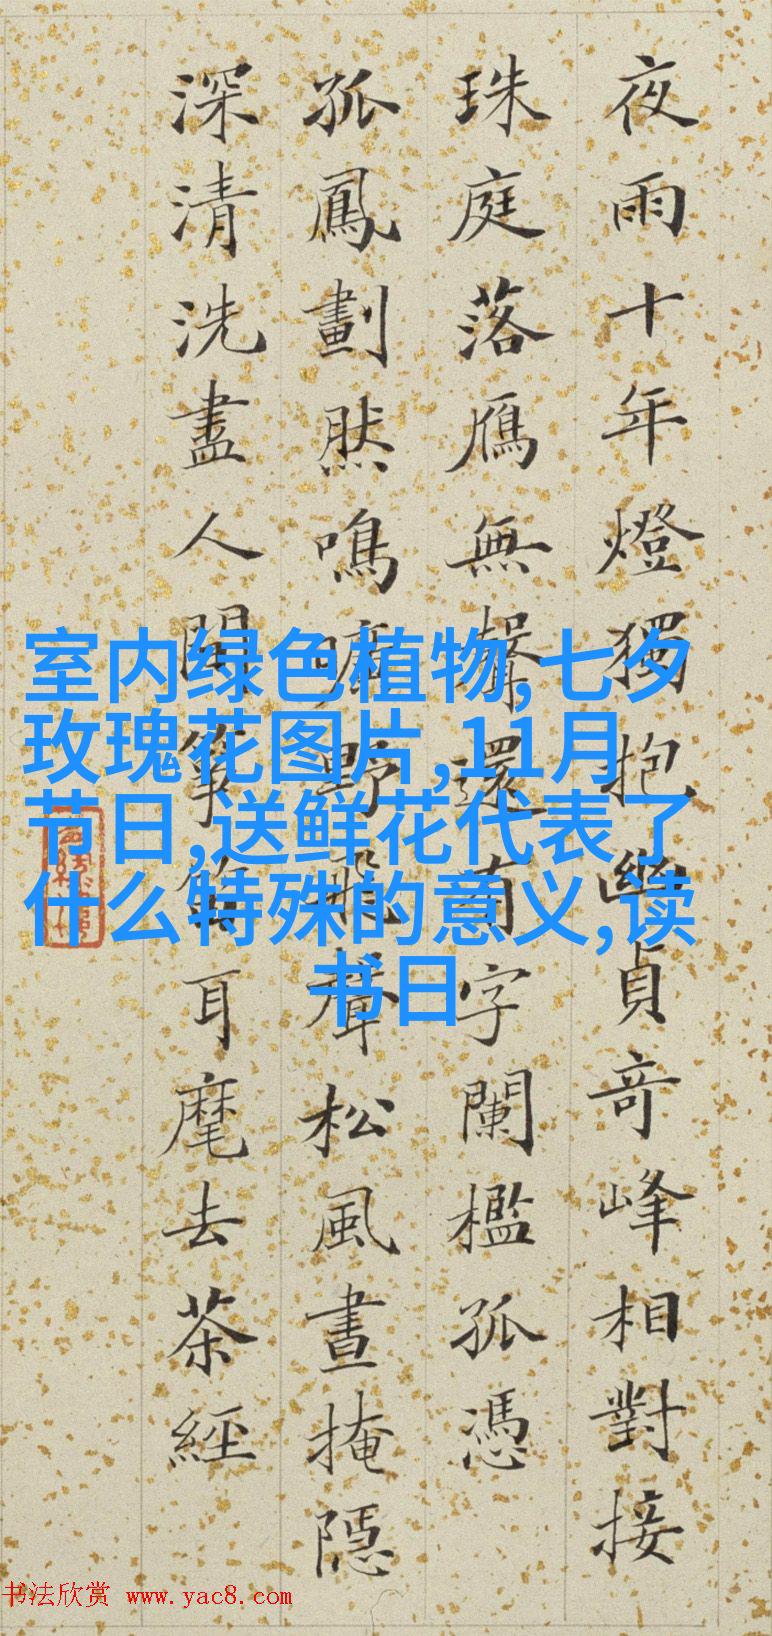 夜雨十年燈獨抱幽貞奇峰相對接
珠庭落鴈無聲還有字闌檻孤憑
孤鳳劃然鳴曠野飛聲松風晝掩隱
深清洗盡人間箏笛耳麾去茶經
室内绿色植物,七夕
玫瑰花图片,11月
节日,送鲜花代表了
什么特殊的意义,读
书日
书法欣赏 www.yac8.com